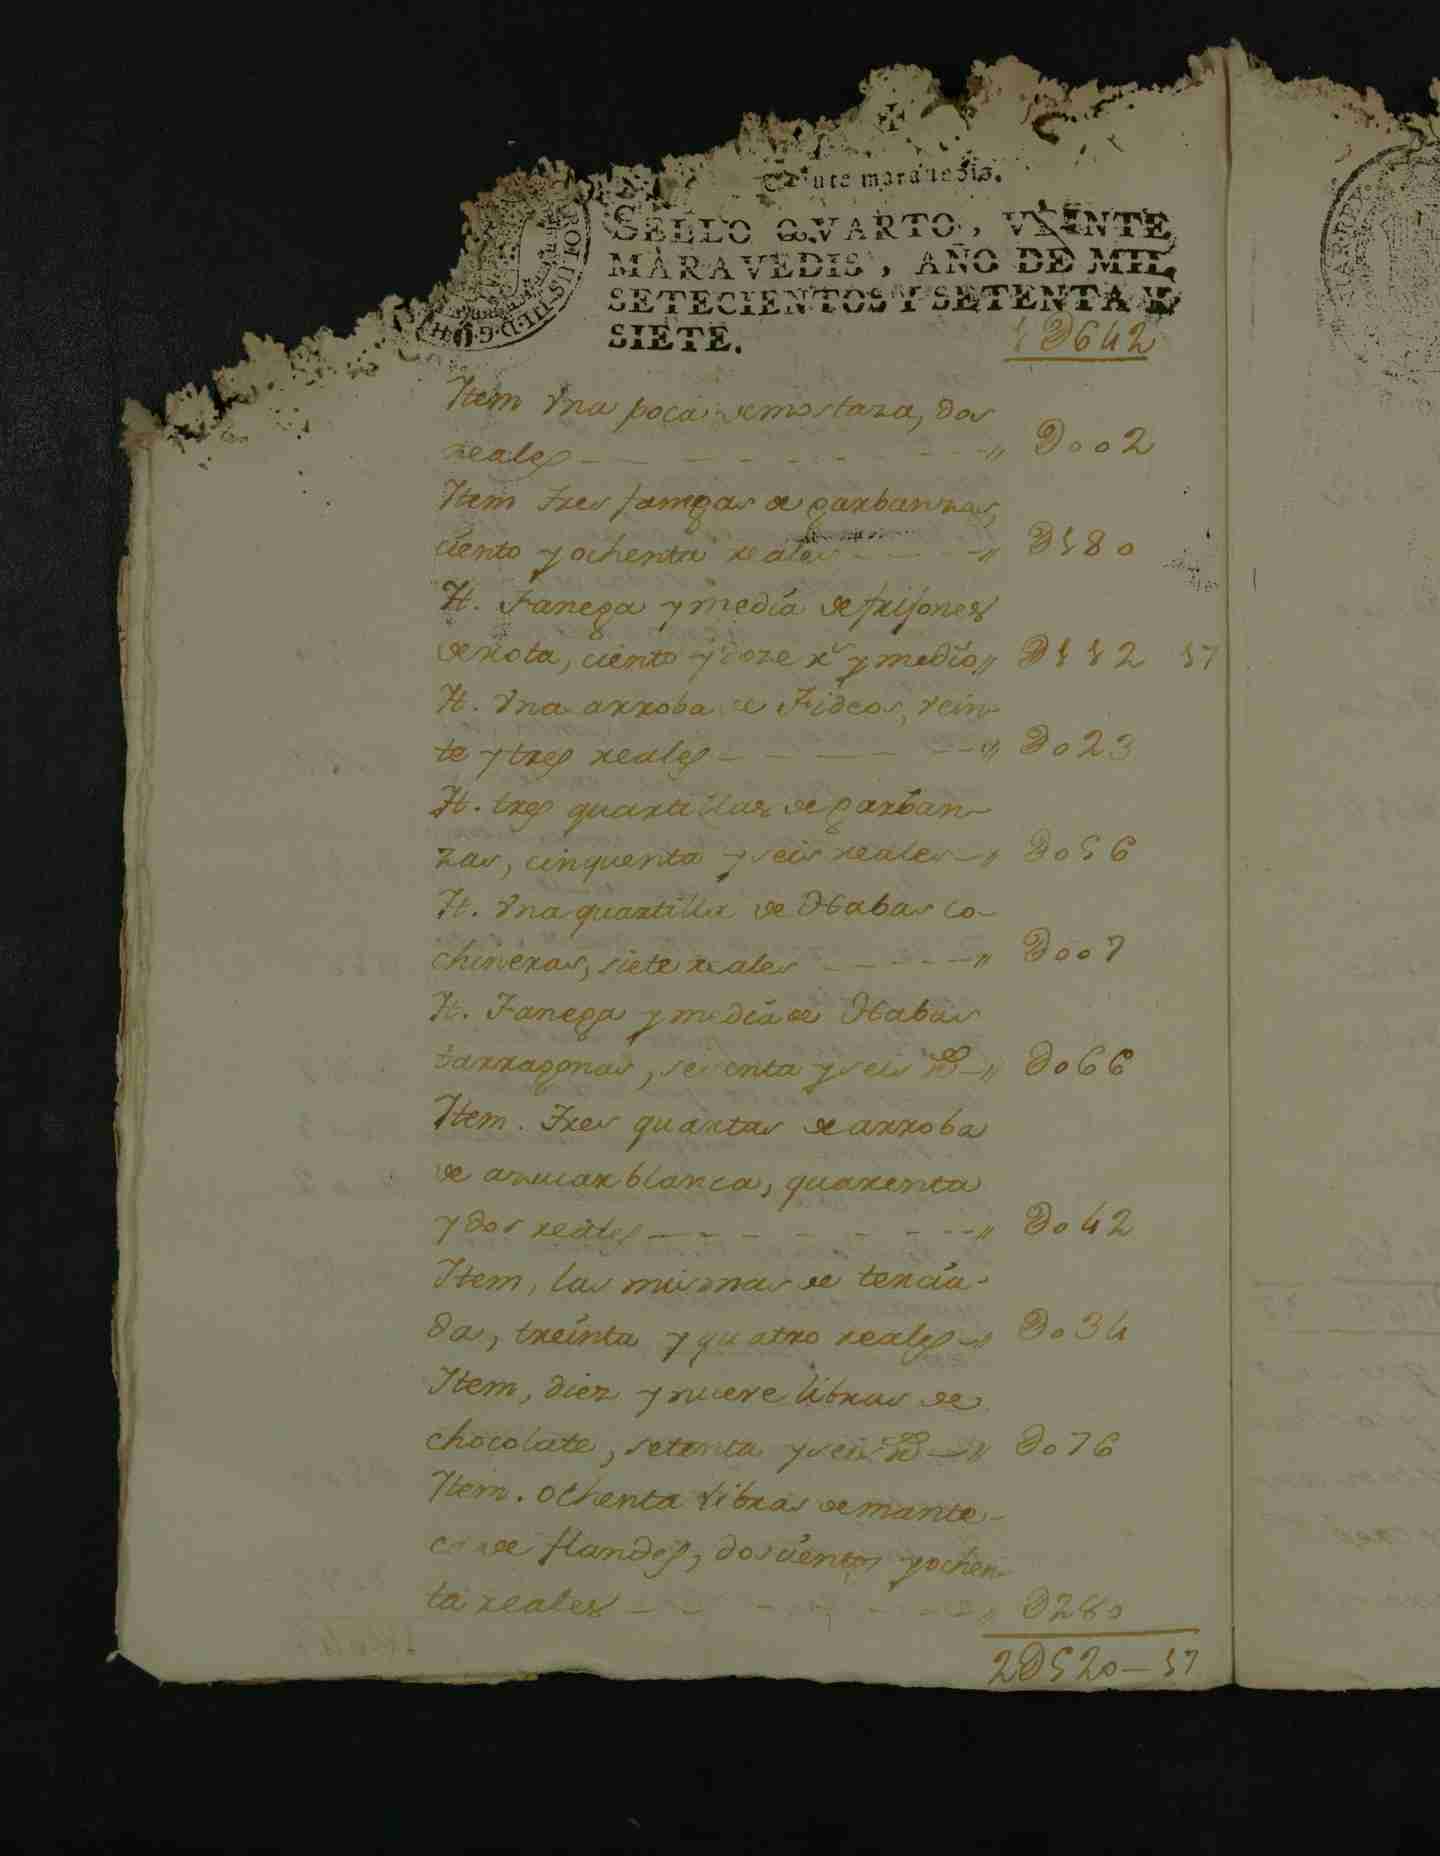 ✠
Veinte maravedis.
SELLO QVARTO, VEINTE
MARAVEDIS, AÑO DE MIL
SETECIENTOS Y SETENTA Y
SIETE.
1D642
Item Vna poca de mostaza, dos
reales — D002
Item tres fanegas de garbanzas,
ciento y ochenta reales — D180
It. Fanega y media de frijones
de rota, ciento y doze rs. y medio D112 17
It. Vna arroba de Fideos, vein-
te y tres reales — D023
It. tres quartillas de garban-
zas, cinquenta y seis reales — D056
It. Vna quartilla de Habas co-
chineras, siete reales — D007
It. Fanega y media de Habas
tarragonas, sesenta y seis Rs — D066
Item. Tres quartas de arroba
de azucar blanca, quarenta
y dos reales — D042
Item, las mismas de tercia-
da, treinta y quatro reales — D034
Item, diez y nueve libras de
chocolate, setenta y seis Rs — D076
Item. ochenta libras de mante-
ca de flandes, doscientos y ochen-
ta reales — D280
2D520 — 17